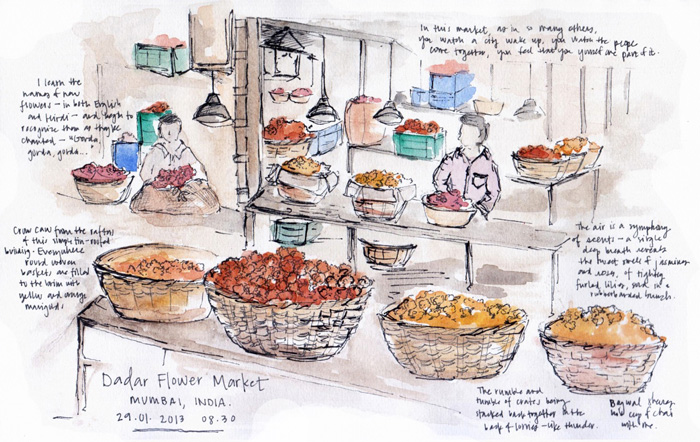 In this market, as in so many others,
you watch a city wake up, you watch the people
come together, you feel that you yourself are part of it.
I learn the
names of new
flowers – in both English
and Hindi – and begin to
recognize them as they're
chanted – "Gonda,
gonda, gonda...
Crows caw from the rafters
of this simple tin-roofed
building. Everywhere
round woven
baskets are filled
to the brim with
yellow and orange
marigolds.
The air is a symphony
of scents – a single
deep breath reveals
the sweet smell of jasmine
and roses, of tightly
furled lilies, sold in a
rubberbanded bunch.
Dadar Flower Market
MUMBAI, INDIA.
29.01.2013 08.30
The rumble and
tumble of crates being
stacked back together in the
back of lorries – like thunder.
shares
his cup of chai
with me.